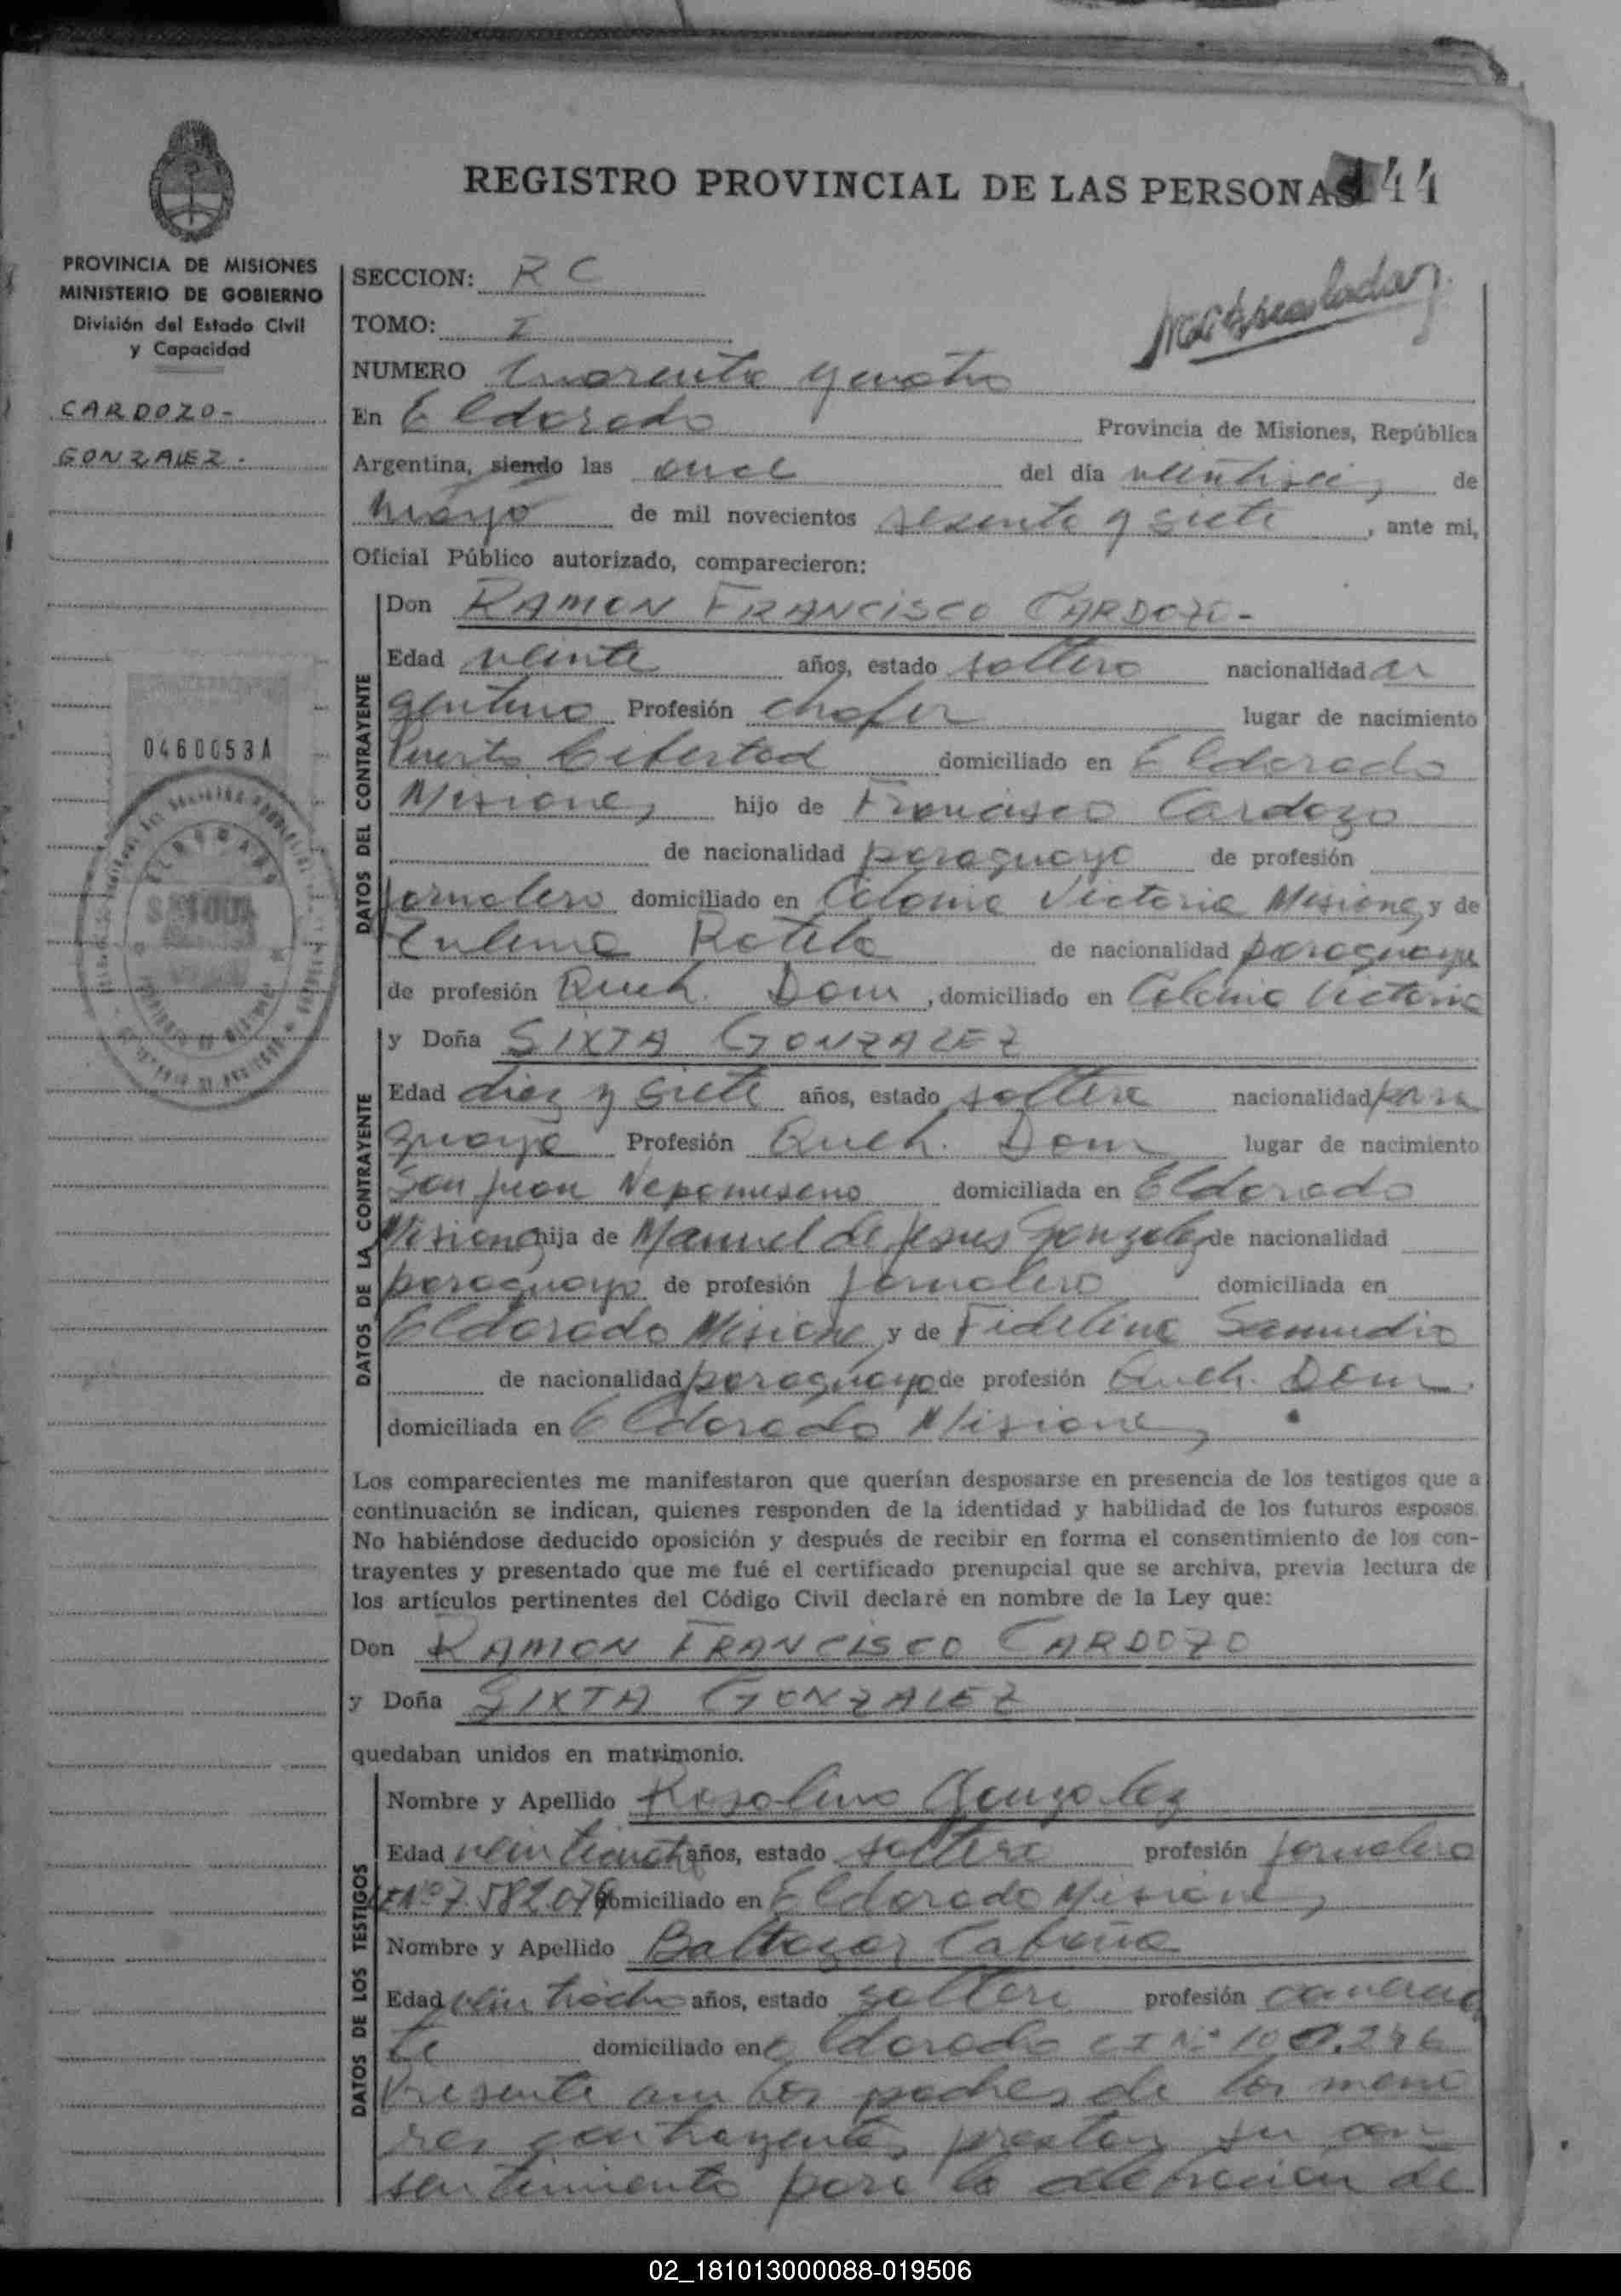 REGISTRO PROVINCIAL DE LAS PERSONAS 144
PROVINCIA DE MISIONES
MINISTERIO DE GOBIERNO
División del Estado Civil
y Capacidad
CARDOZO-
GONZALEZ.
0460053A
SECCION: R C
TOMO: I
NUMERO Cuarenta y cuatro
En Eldorado Provincia de Misiones, República
Argentina, siendo las once del día veintiseis de
mayo de mil novecientos sesenta y siete, ante mi,
Oficial Público autorizado, comparecieron:
DATOS DEL CONTRAYENTE
Don RAMON FRANCISCO CARDOZO-
Edad veinte años, estado soltero nacionalidad ar
gentino Profesión chofer lugar de nacimiento
Puerto Libertad domiciliado en Eldorado
Misiones hijo de Francisco Cardozo
de nacionalidad paraguayo de profesión
jornalero domiciliado en Colonia Victoria Misiones y de
Zulema Rotela de nacionalidad paraguaya
de profesión Queh. Dom, domiciliado en Colonia Victoria
DATOS DE LA CONTRAYENTE
y Doña SIXTA GONZALEZ
Edad diez y siete años, estado soltera nacionalidad para
guaya Profesión Queh. Dom lugar de nacimiento
San Juan Nepomuseno domiciliada en Eldorado
Misiones hija de Manuel de Jesus Gonzalez de nacionalidad
paraguayo de profesión jornalero domiciliada en
Eldorado Misiones y de Fidelina Samudio
de nacionalidad paraguaya de profesión Queh. Dom.
domiciliada en Eldorado Misiones
Los comparecientes me manifestaron que querían desposarse en presencia de los testigos que a
continuación se indican, quienes responden de la identidad y habilidad de los futuros esposos.
No habiéndose deducido oposición y después de recibir en forma el consentimiento de los con-
trayentes y presentado que me fué el certificado prenupcial que se archiva, previa lectura de
los artículos pertinentes del Código Civil declaré en nombre de la Ley que:
Don RAMON FRANCISCO CARDOZO
y Doña SIXTA GONZALEZ
quedaban unidos en matrimonio.
DATOS DE LOS TESTIGOS
Nombre y Apellido Rosalino Gonzalez
Edad años, estado soltero profesión jornalero
Nº 7.582.079 domiciliado en Eldorado Misiones
Nombre y Apellido Baltazar Cabaña
Edad veintiocho años, estado soltero profesión comercian
te domiciliado en Eldorado C I Nº 100.246
Presente ambos padres de los meno
res contrayentes prestan su con
sentimiento para la celebracion de
02_181013000088-019506